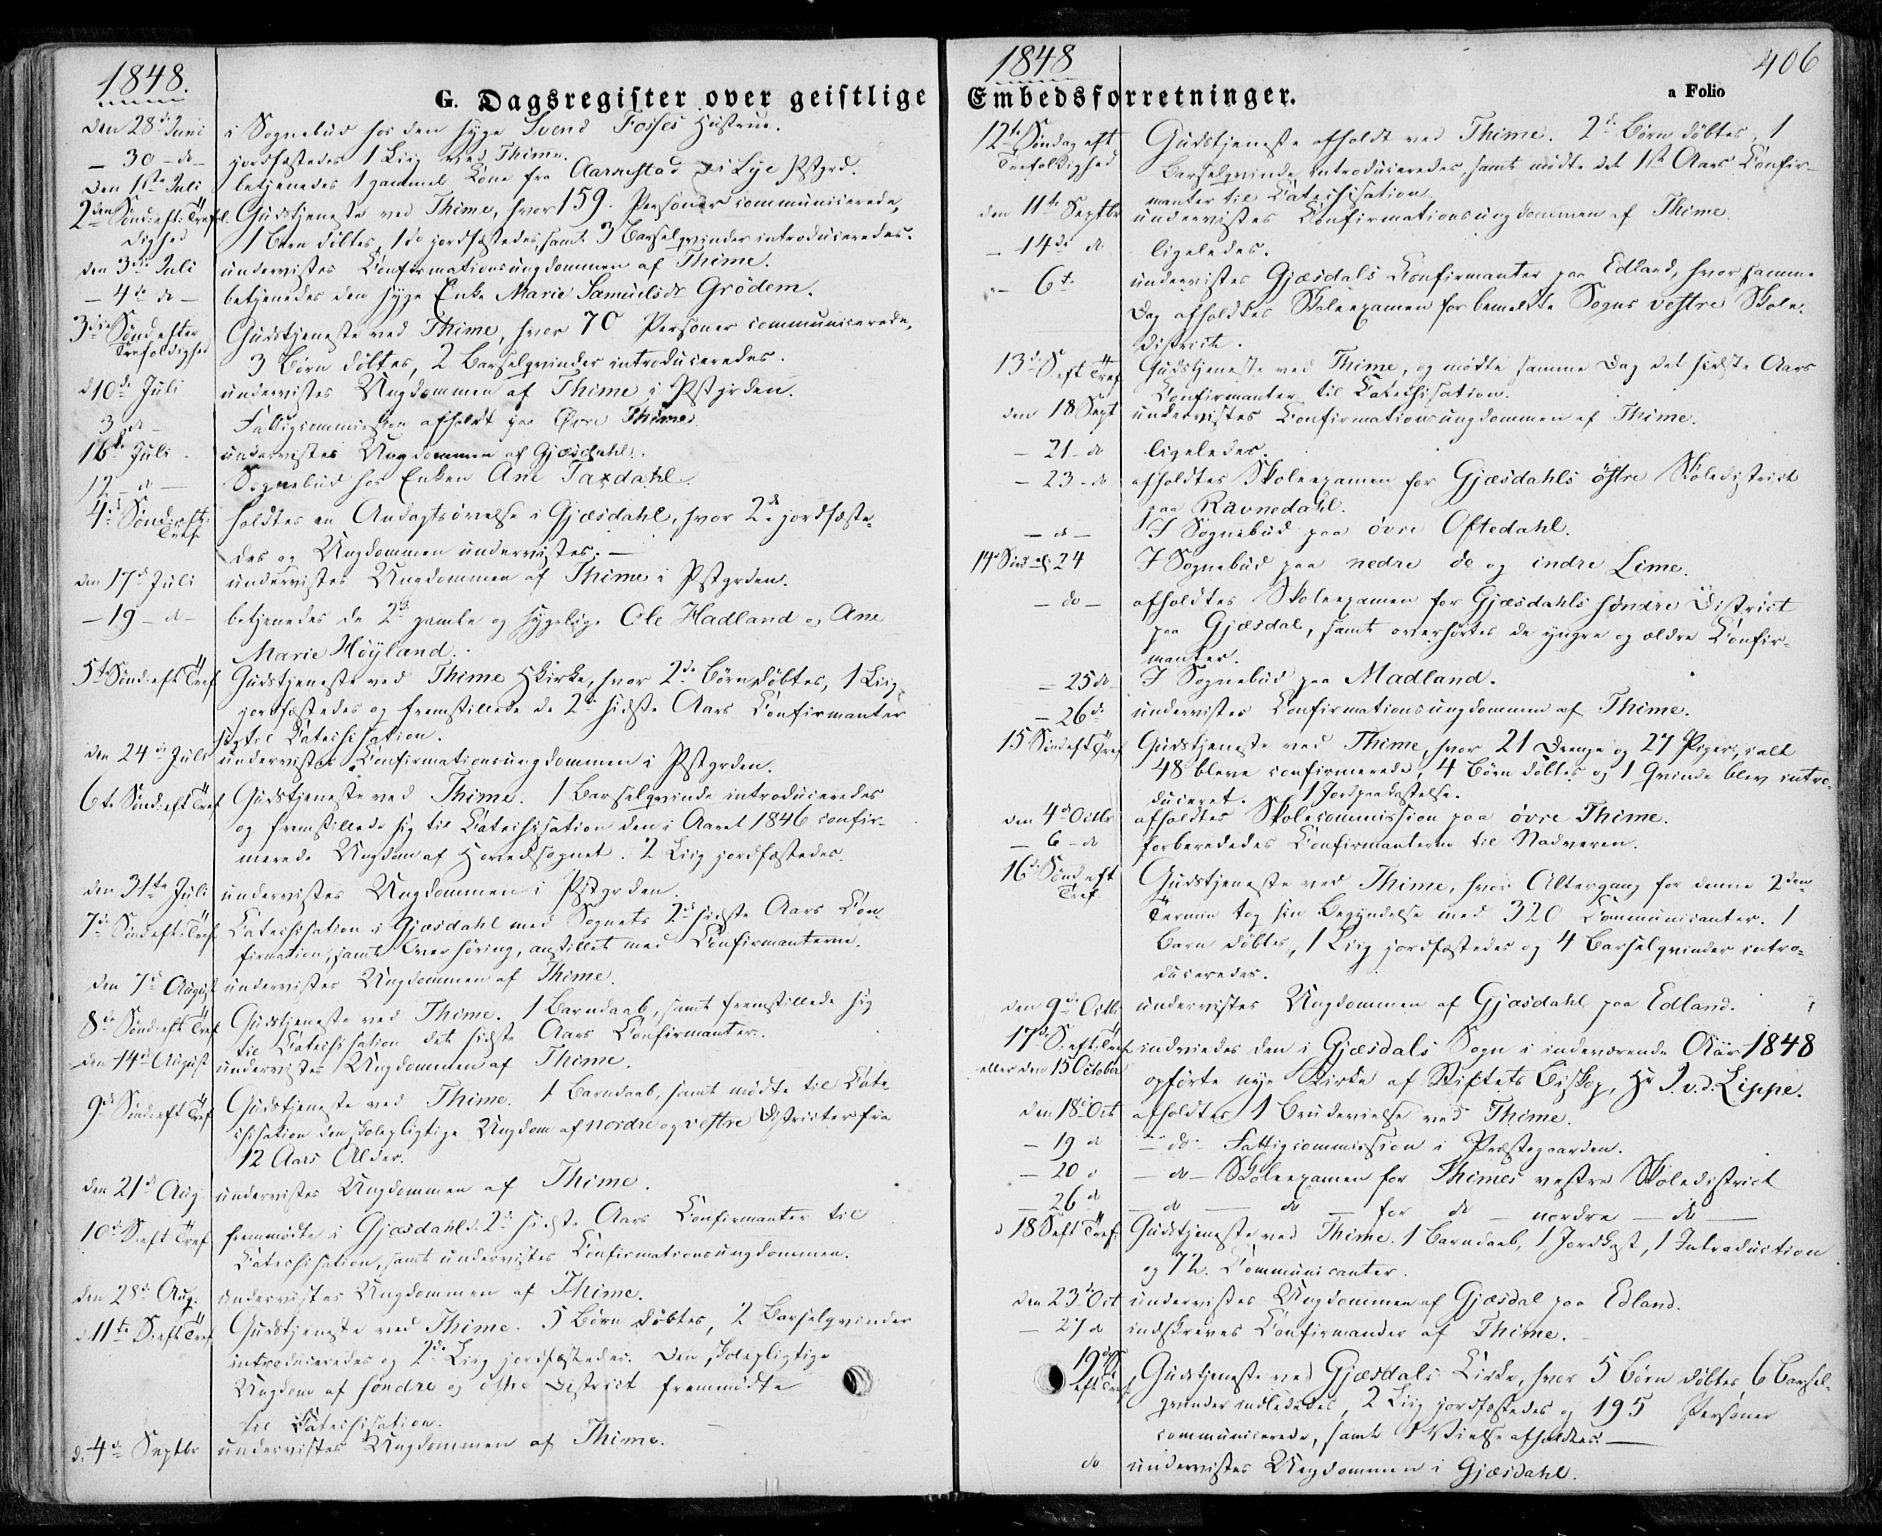 1848.
G. Dagsregister over geistlige
den 28de Juni i Sognebud hos den syge Svend Fosses Hustrue.
— 30 – do – jordfæstedes 1 Liig ved Thime.
den 1ste Juli betjenedes 1 gammel Kone fra Aarrestad i Lye Pstgrd.
2den Sönd: eft: Trefol- Gudstjeneste ved Thime, hvor 159. Personer communicerede,
dighed 1 Barn döbtes, 1 do jordfæstedes, samt 3 Barselqvinder introduceredes.
den 3die Juli undervistes Confirmationsungdommen af Thime.
— 4de do — betjenedes den syge Enke Marie Samuelsdr Grödem.
3die Sönd. efter Gudstjeneste ved Thime, hvor 70 Personer communicerede,
Trefoldighed 3 Börn döbtes, 2 Barselqvinder introduceredes.
d 10de Juli undervistes Ungdommen af Thime i Pstgrden.
3 do – Fattigcommission afholdt paa Övre Thime.
16de Juli – undervistes Ungdommen af Gjæsdahl.
12 – d – Sognebud hos Enken Ane Taxdahl.
4de Sönd: eft: holdtes en Andagtsövelse i Gjæsdahl, hvor 2de jordfæste-
Tref: des og Ungdommen undervistes. —
den 17de Juli undervistes Ungdommen af Thime i Pstgrden.
— 19 – do – betjenedes de 2de gamle og sygelige Ole Hadland og Ane
Marie Höyland.
5te Sönd: eft Tref Gudstjeneste ved Thime Kirke, hvor 2de Börn döbtes, 1 Liig
jordfæstedes og fremstillede de 2de sidste Aars Confirmanter
sig til Catechisation.
den 24de Juli undervistes Confirmationsungdommen i Pstgrden.
6te Sönd: eft Tref Gudstjeneste ved Thime. 1 Barselqvinde introduceredes
og fremstillede sig til Catechisation den i Aaret 1846 confir-
merede Ungdom af Hovedsognet. 2 Liig jordfæstedes.
den 31te Juli undervistes Ungdommen i Pstgrden.
7de Sönd eft: Tref Catechisation i Gjæsdahl med Sognets 2de sidste Aars Con
firmation, samt Overhöring, anstillet med Confirmanterne.
den 7de August undervistes Ungdommen af Thime.
8de Sönd: eft Tref Gudstjeneste ved Thime. 1 Barndaab, samt fremstillede sig
til Catechisation det sidste Aars Confirmanter.
den 14de August undervistes Ungdommen af Thime.
9de Sönd: eft Tref Gudstjeneste ved Thime. 1 Barndaab, samt mödte til Cate
chisation den skolepligtige Ungdom af nordre og vestre Districter fra
12 Aars Alder.
den 21de Aug undervistes Ungdommen af Thime.
10de S: eft Tref fremmödte i Gjæsdahl de 2de sidste Aars Confirmanter til
Catechisation, samt undervistes Confirmationsungdommen.
den 28de Aug. undervistes Ungdommen af Thime.
d. 11te S: eft Tref Gudstjeneste ved Thime. 5 Börn döbtes, 2 Barselqvinder
introduceredes og 2de Liig jordfæstedes. Den skolepligtige
Ungdom af söndre og östre District fremmödte
til Catechisation.
d. 4de Septbr undervistes Ungdommen af Thime.
1848
406
Embedsforretninger.
a Folio
12te Söndag eft Gudstjeneste afholdt ved Thime. 2de Börn döbtes, 1
Trefoldighed Barselqvinde introduceredes, samt mödte det 1ste Aars Confir-
manter til Catechisation.
den 11te Septbr undervistes Confirmationsungdommen af Thime.
— 14de do ligeledes.
— 6te undervistes Gjæsdals Confirmanter paa Edland, hvor samme
Dag afholdtes Skoleexamen for bemeldte Sogns vestre Skole-
district.
13de S eft Tref Gudstjeneste ved Thime, og mödte samme Dag det sidste Aars
Confirmanter til Catechisation.
den 18 Sept undervistes Confirmationsungdommen af Thime.
— 21 – do ligeledes.
— 23 – do afholdtes Skoleexamen for Gjæsdahls östre Skoledistrict
paa Ravnedahl.
— d — I Sognebud paa övre Oftedahl.
14de Sönd 24 I Sognebud paa nedre do og indre Lime.
— do — afholdtes Skoleexamen for Gjæsdahls söndre District
paa Gjæsdal, samt overhörtes de yngre og ældre Confir-
manter.
— 25 do – I Sognebud paa Madland.
— 26 do undervistes Confirmationsungdommen af Thime.
15 Sönd eft Tref Gudstjeneste ved Thime, hvor 21 Drenge og 27 Piger, i alt
48 bleve confirmerede, 4 Börn döbtes og 1 Qvinde blev intro-
duceret. 1 Jordpaakastelse.
den 4de Octbr afholdtes Skolecommission paa övre Thime.
— 6 – do forberededes Confirmanterne til Nadveren.
16de Sönd eft Gudstjeneste ved Thime, hvor Altergang for denne 2den
Tref Termin tog sin Begyndelse med 320 Communicanter. 1
Barn döbtes, 1 Liig jordfæstedes og 4 Barselqvinder intro-
duceredes.
den 9de Octbr undervistes Ungdommen af Gjæsdahl paa Edland.
17de S: eft: Tref indviedes den i Gjæsdals Sogn i indeværende Aar 1848
eller den 15 October opförte nye Kirke af Stiftets Biskop, Hr J. v. d. Lippe.
den 18de Oct afholdtes 1 Brudevielse ved Thime.
— 19 d — do – Fattigcommission i Præstegaarden.
— 20 d — do – Skoleexamen for Thimes vestre Skoledistrict
— 26 d — d — do — for do – nordre – do —
d 18 S eft Tref: Gudstjeneste ved Thime. 1 Barndaab, 1 Jordkast, 1 Introduction
og 72. Communicanter.
den 23de Oct undervistes Ungdommen af Gjæsdal paa Edland.
— 27 d indskreves Confirmander af Thime. –
19de S. Gudstjeneste ved Gjæsdals Kirke, hvor 5 Börn döbtes 6 Barsel-
eft Tref: qvinder indlededes, 2 Liig jordfæstedes og 195 Personer
communicerede, samt 1 Vielse afholdtes. —
do undervistes Ungdommen i Gjæsdahl.